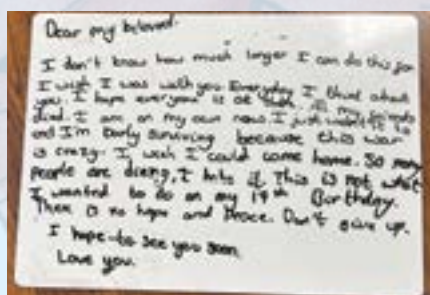 Dear my beloved.
I don't know how much longer I can do this for
I wish I was with you. Everyday I think about
you. I hope everyone is ok. All my friends
died. I am on my own now. I just want it to
end I'm barly surviving because this war
is crazy. I wish I could come home. So many
people are dieing, I hate it. This is not what
I wanted to do on my 19th Birthday.
There is no hope and Peace. Don't give up.
I hope to see you soon.
Love you.